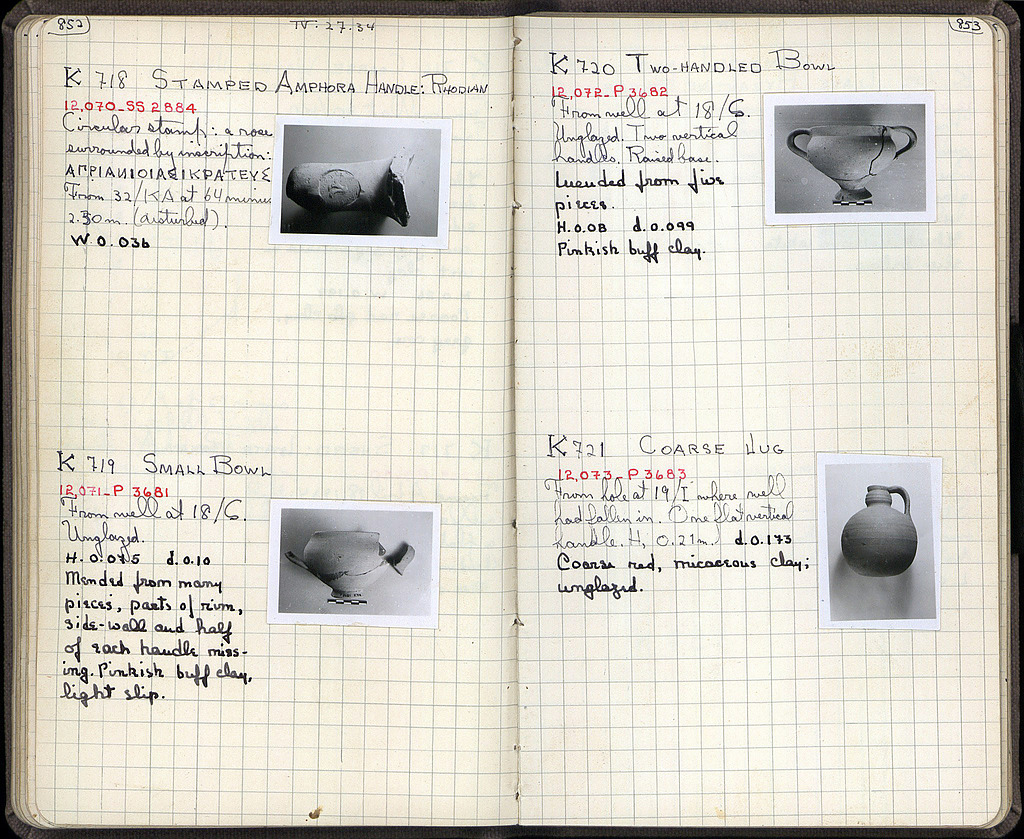 852
IV. 27.34
K 718 STAMPED AMPHORA HANDLE: RHODIAN
12,070_SS 2884
Circular stamp: a rose
surrounded by inscription:
From 32/KA at 64 minus
2.30 m. (disturbed).
W. 0.036
K 719 SMALL BOWL
12,071_P 3681
From well at 18/S.
Unglazed.
H. 0.075 d. 0.10
Mended from many
pieces, parts of rim,
side-wall and half
of each handle miss-
ing. Pinkish buff clay,
light slip.
853
K 720 TWO-HANDLED BOWL
12,072_P 3682
From well at 18/S.
Unglazed. Two vertical
handles. Raised base.
Mended from five
pieces.
H. 0.08 d. 0.099
Pinkish buff clay.
K 721 COARSE JUG
12,073_P 3683
From hole at 19/I where well
had fallen in. One flat vertical
handle. H. 0.21m. d. 0.173
Coarse red, micaceous clay;
unglazed.